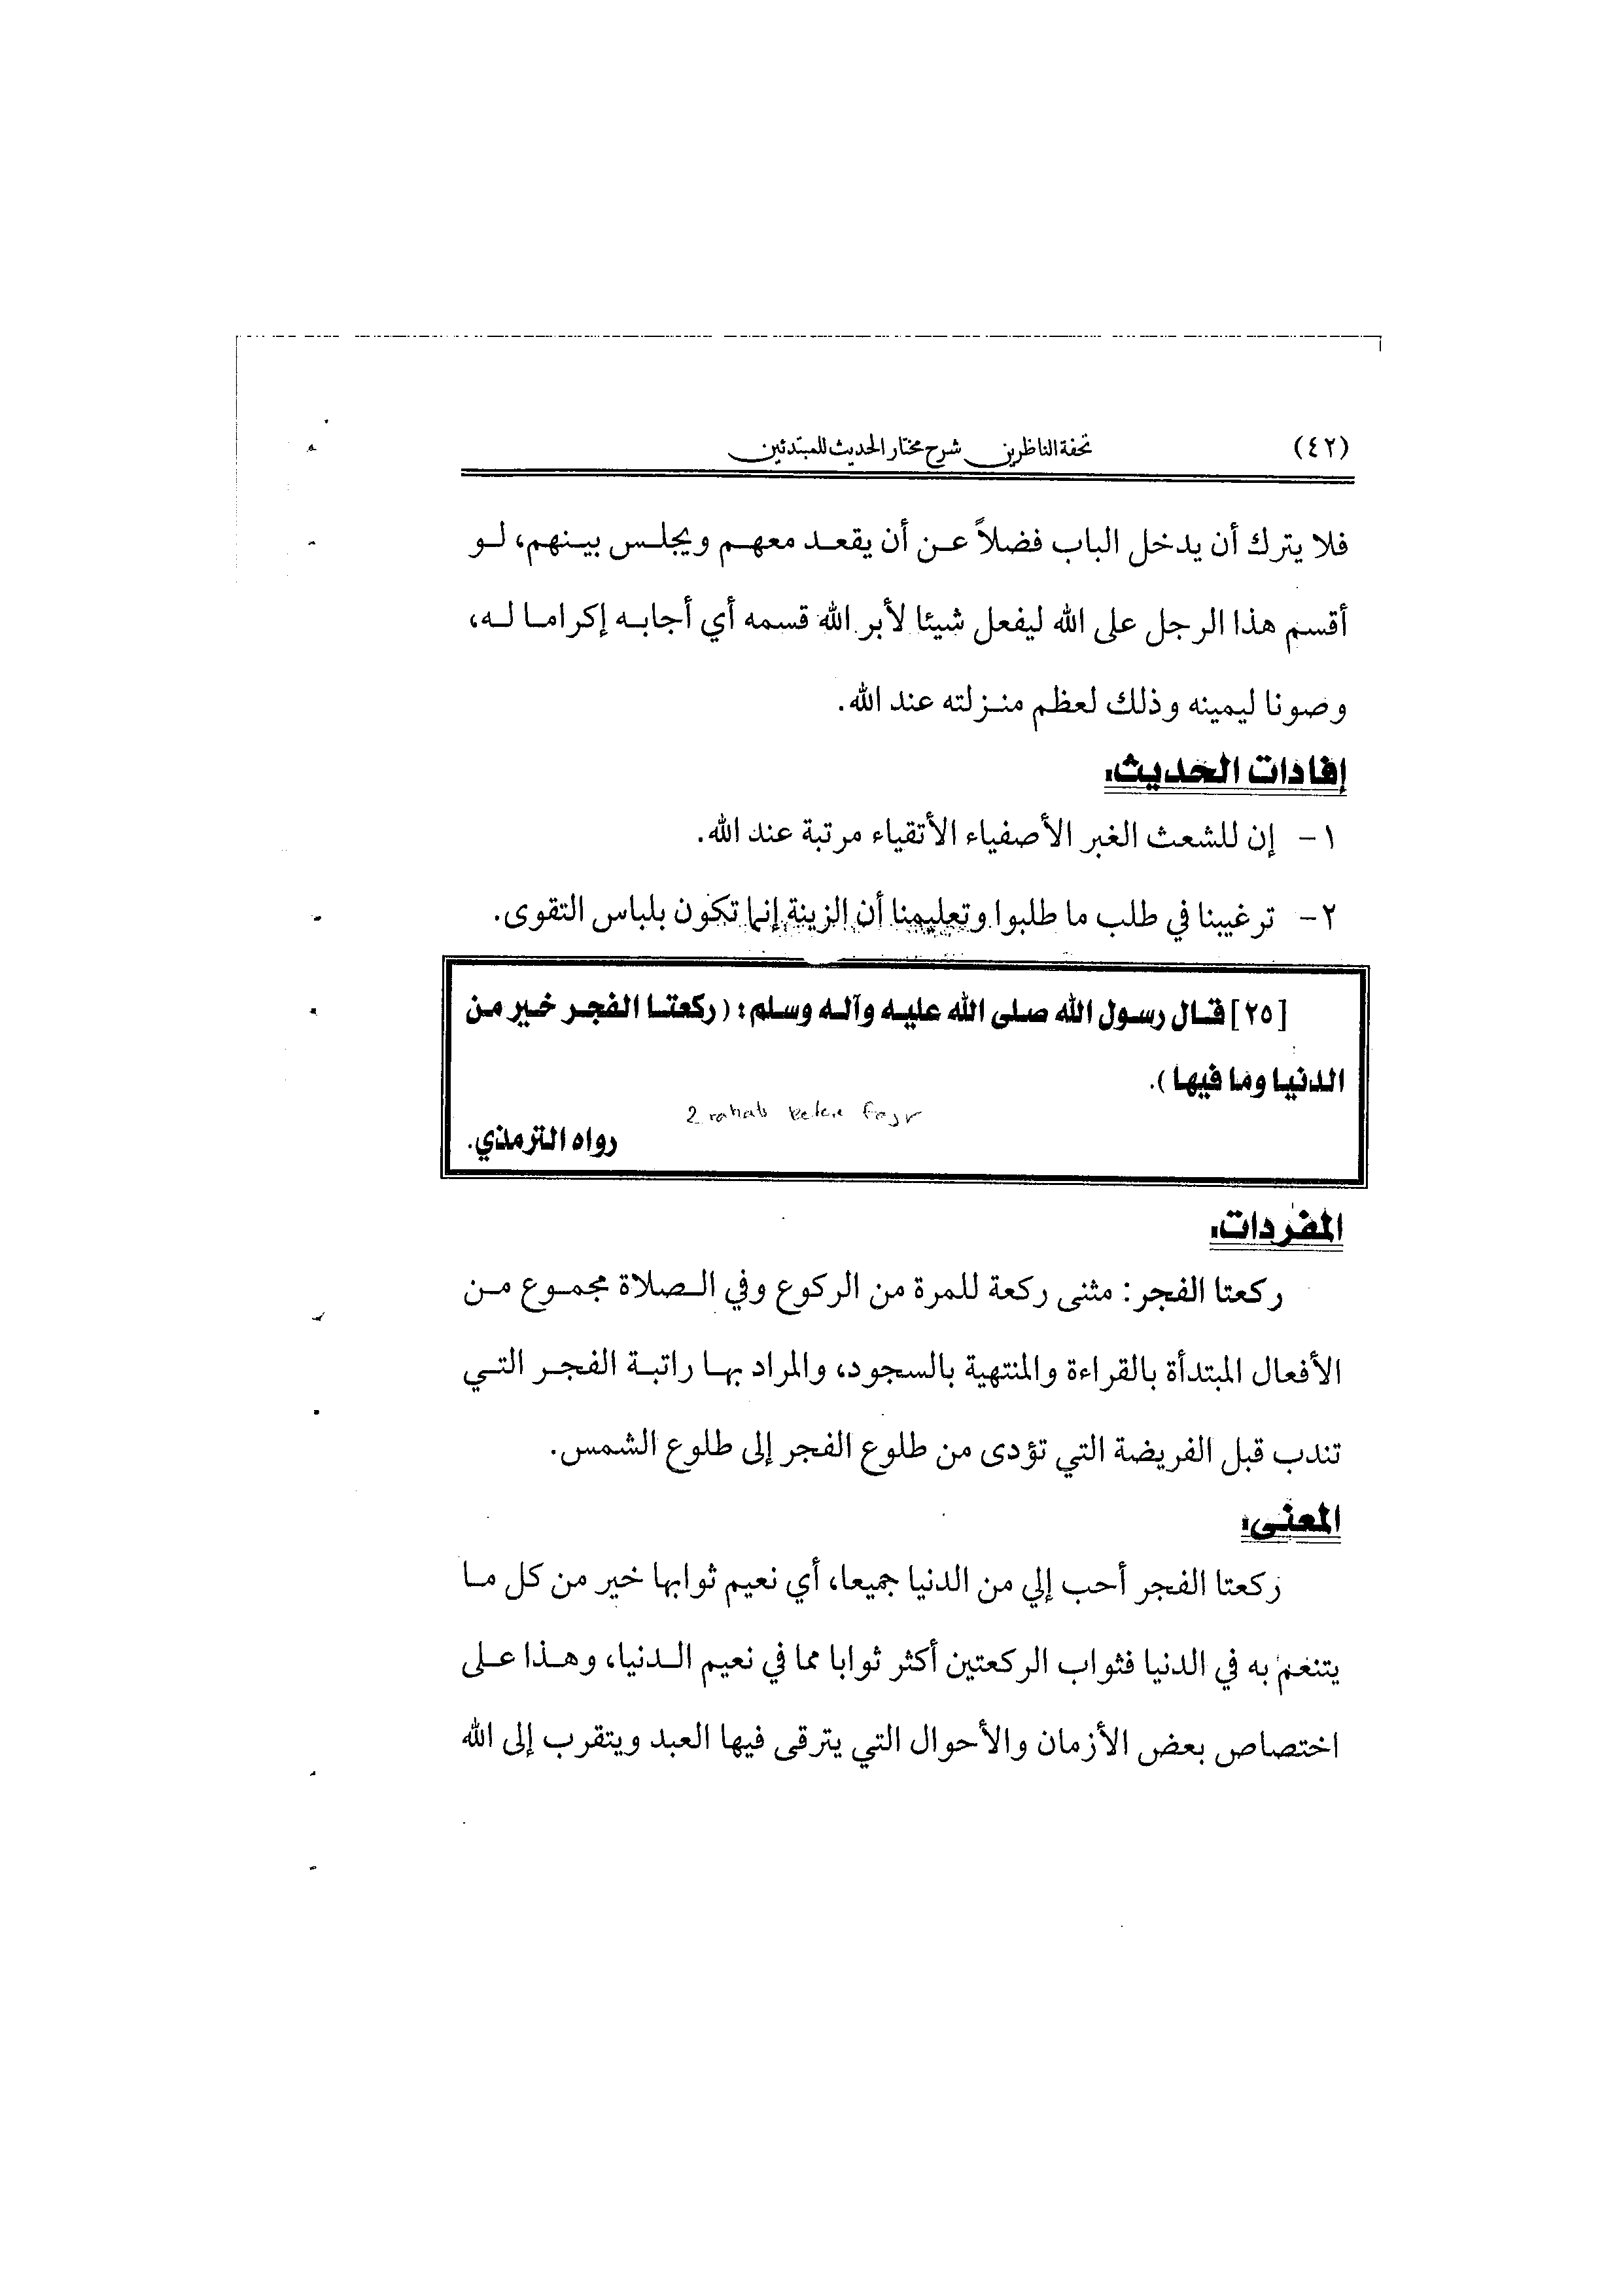 (٤٢) تحفة الناظرين شرح مختار الحديث للمبتدئين
فلا يترك أن يدخل الباب فضلاً عن أن يقعد معهم ويجلس بينهم، لو
أقسم هذا الرجل على الله ليفعل شيئا لأبر الله قسمه أي أجابه إكراما له،
وصونا ليمينه وذلك لعظم منزلته عند الله.
إفادات الحديث:
١- إن للشعث الغبر الأصفياء الأتقياء مرتبة عند الله.
٢- ترغيبنا في طلب ما طلبوا وتعليمنا أن الزينة إنما تكون بلباس التقوى.
[٢٥] قال رسول الله صلى الله عليه وآله وسلم: (ركعتا الفجر خير من
الدنيا وما فيها).
2 rahab fajr
رواه الترمذي.
المفردات:
ركعتا الفجر: مثنى ركعة للمرة من الركوع وفي الصلاة مجموع من
الأفعال المبتدأة بالقراءة والمنتهية بالسجود، والمراد بها راتبة الفجر التي
تندب قبل الفريضة التي تؤدى من طلوع الفجر إلى طلوع الشمس.
المعنى:
ركعتا الفجر أحب إلي من الدنيا جميعا، أي نعيم ثوابها خير من كل ما
يتنعم به في الدنيا فثواب الركعتين أكثر ثوابا مما في نعيم الدنيا، وهذا على
اختصاص بعض الأزمان والأحوال التي يترقى فيها العبد ويتقرب إلى الله